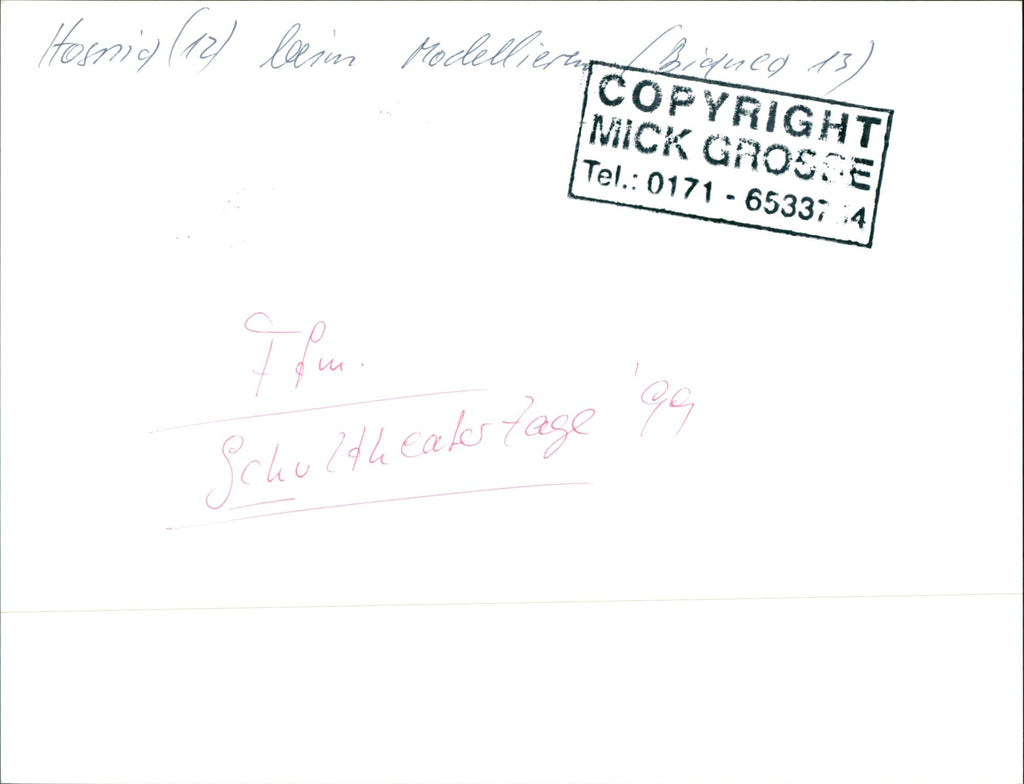 Hosnia (12) beim Modellieren (Bianca 13)
COPYRIGHT
MICK GROSSE
Tel.: 0171 -
Ffm.
Schultheatertage '99